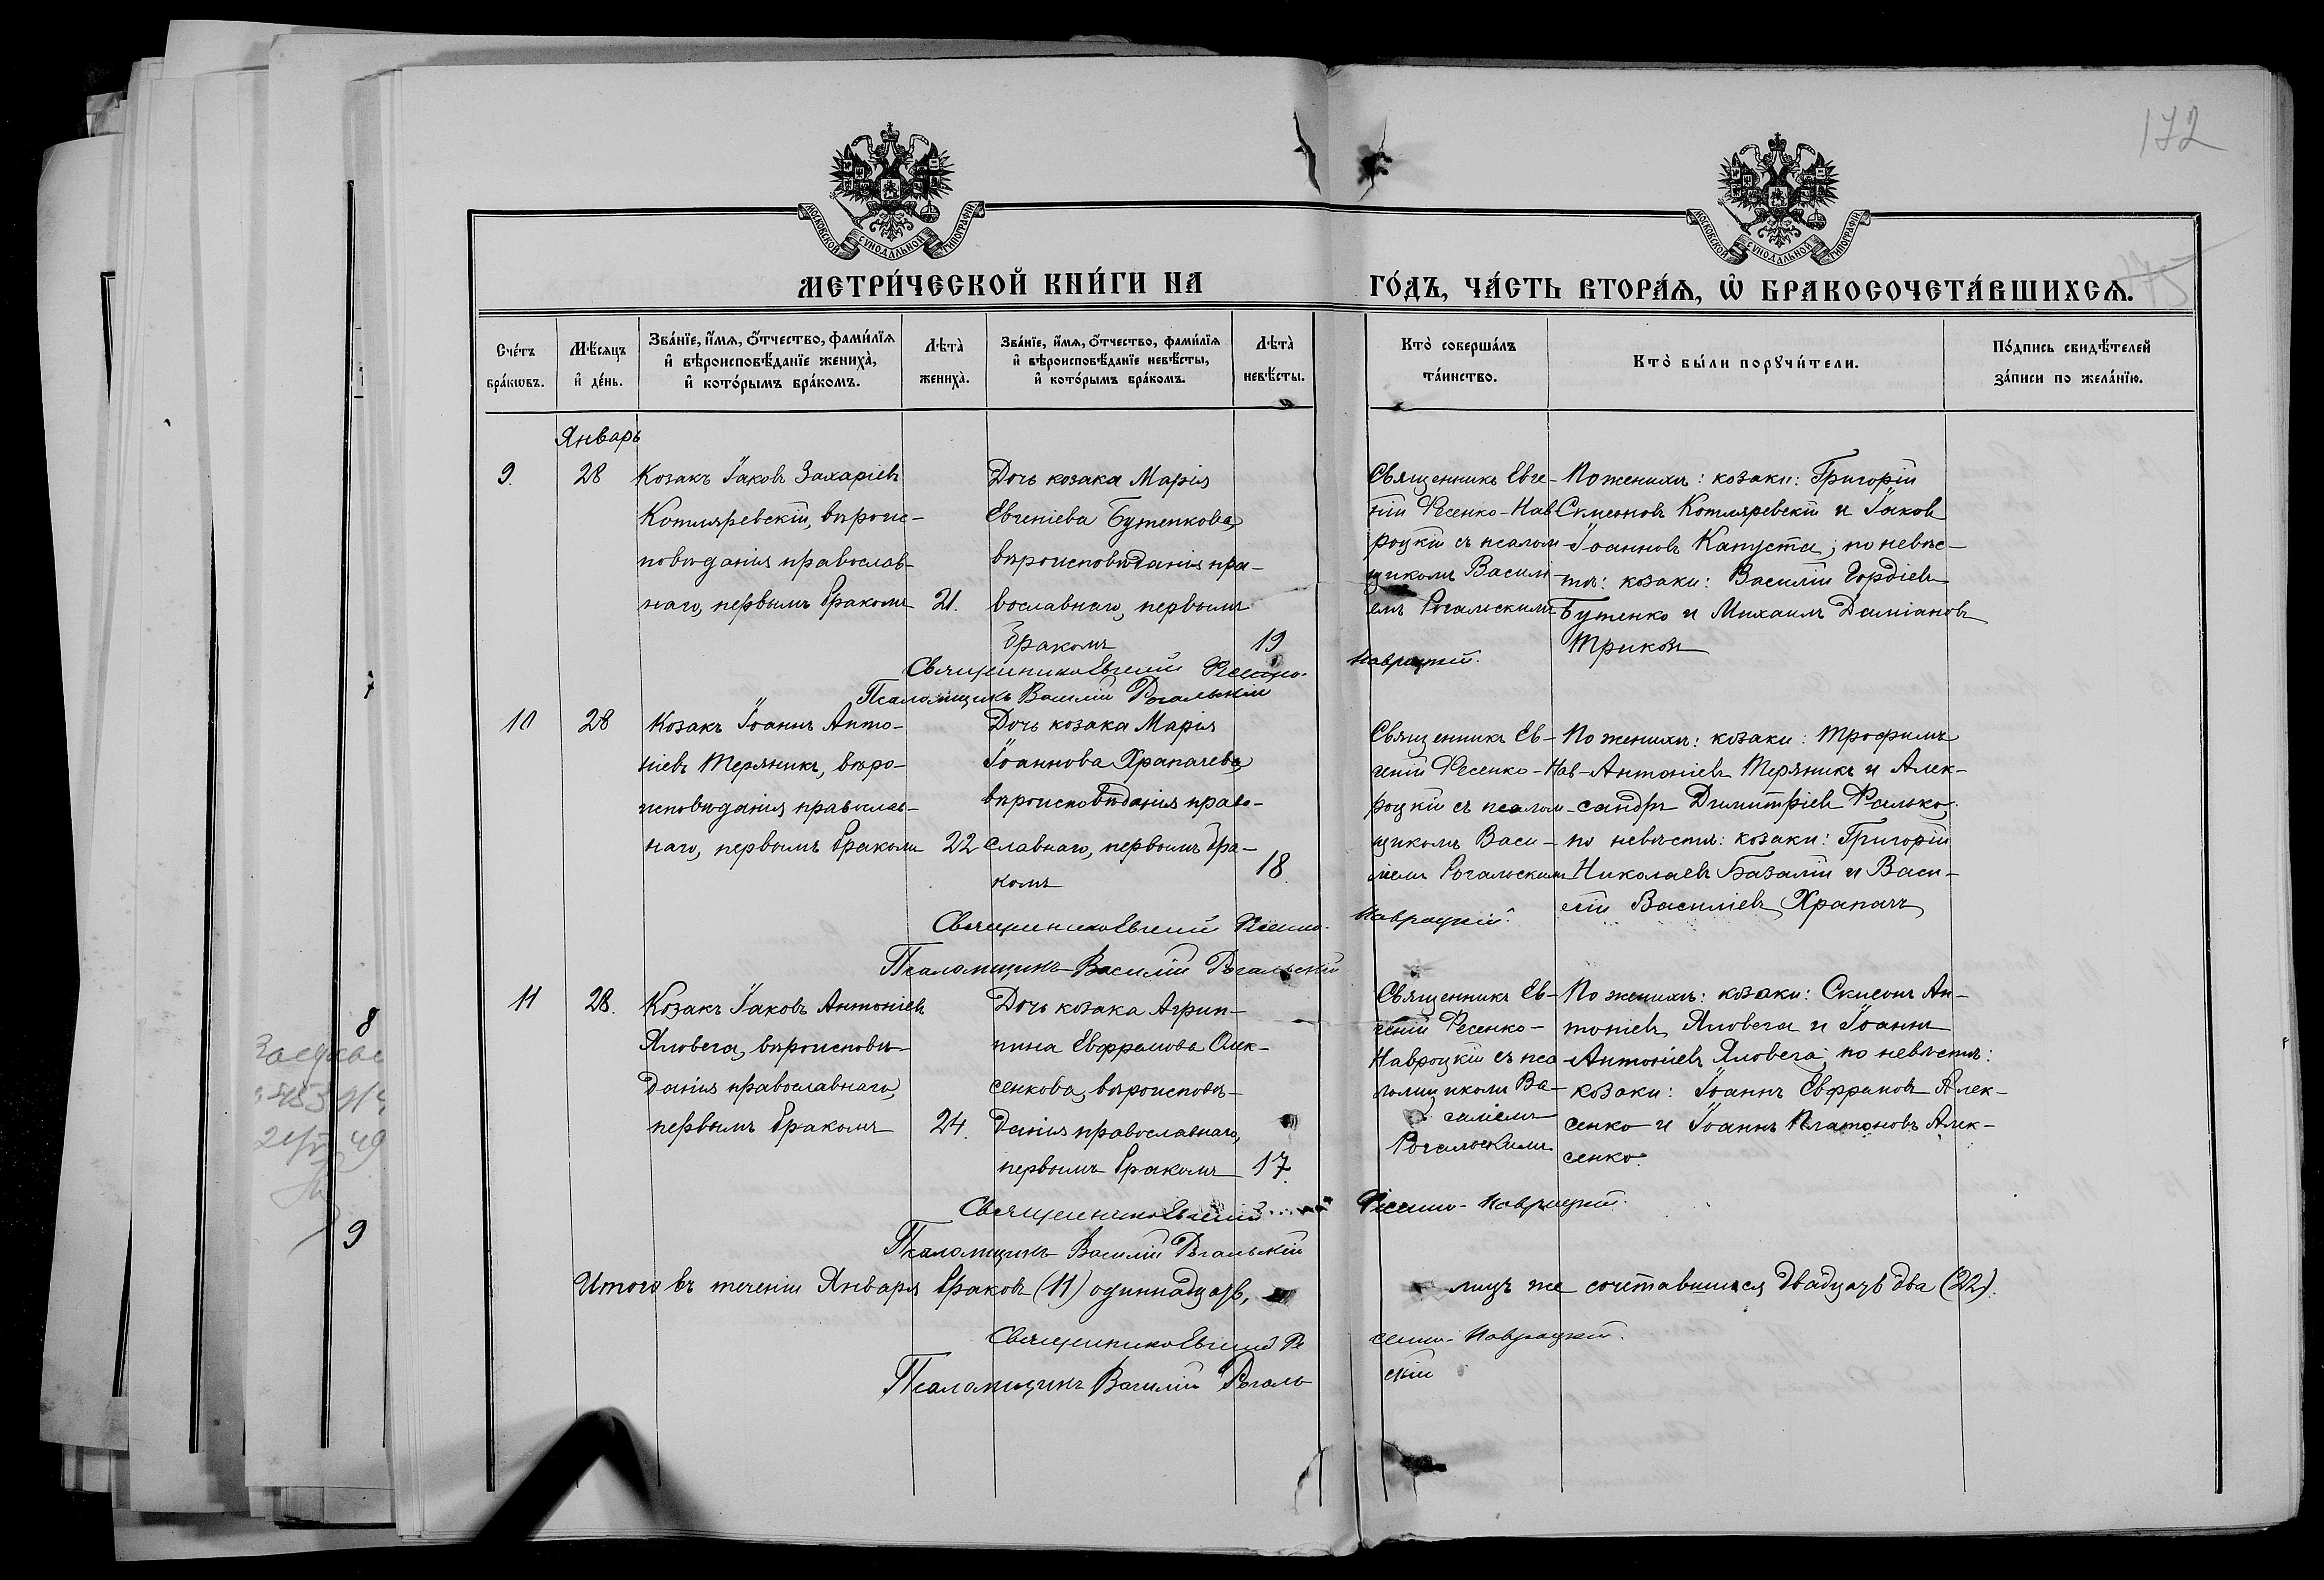 172
175
МОСКОВСКОЙ СѴНОДАЛЬНОЙ ТИПОГРАФІИ
МОСКОВСКОЙ СѴНОДАЛЬНОЙ ТИПОГРАФІИ
МЕТРИ́ЧЕСКОЙ КНИ́ГИ НА ГО́ДЪ, ЧА́СТЬ ВТОРА́Ѧ, Ѡ҆ БРАКОСОЧЕТА́ВШИХСѦ.
Сче́тъ бра́кѡвъ.
Мѣ́сяцъ и҆ де́нь.
Зва́нїе, и҆́мѧ, ѻ҆́тчество, фами́лїѧ и҆ вѣроисповѣ́данїе жениха̀, и҆ кото́рымъ бра́комъ.
Лѣта̀ жениха̀.
Зва́нїе, и҆́мѧ, ѻ҆́тчество, фами́лїѧ и҆ вѣроисповѣ́данїе невѣ́сты, и҆ кото́рымъ бра́комъ.
Лѣта̀ невѣ́сты.
Кто̀ соверша́лъ та́инство.
Кто̀ бы́ли порꙋчи́тели.
По́дпись свидѣ́телей за́писи по жела́нїю.
Январь
9.
28
Козакъ Іаковъ Захаріевъ
Котляревскій, вѣроис-
повѣданія православ-
наго, первымъ бракомъ
21.
Дочь козака Марія
Евгеніева Бутенкова,
вѣроисповѣданія пра-
вославнаго, первымъ
бракомъ
19
Священникъ Евге-
ній Фесенко-Нав
роцкій съ псалом-
щикомъ Василі-
емъ Рогальскимъ
По женихѣ: козаки: Григорій
Симеоновъ Котляревскій и Іаковъ
Іоанновъ Капуста; по невѣс-
тѣ: козаки: Василій Гордіевъ
Бутенко и Михаилъ Даміановъ
Триковъ
Священникъ Евгеній Фесенко-Навроцкій.
Псаломщикъ Василій Рогальскій
10
28
Козакъ Іоаннъ Анто-
ніевъ Терляникъ, вѣро-
исповѣданія православ-
наго, первымъ бракомъ
22
Дочь козака Марія
Іоаннова Храпачева,
вѣроисповѣданія право-
славнаго, первымъ бра-
комъ
18.
Священникъ Ев-
геній Фесенко-Нав-
роцкій съ псалом-
щикомъ Васи-
ліемъ Рогальскимъ
По женихѣ: козаки: Трофимъ
Антоніевъ Терляникъ и Алек-
сандръ Димитріевъ Фалько;
по невѣстѣ: козаки: Григорій
Николаевъ Базалій и Васи-
лій Василіевъ Храпачъ
Священникъ Евгеній Фесенко-Навроцкій.
Псаломщикъ Василій Рогальскій
11
28.
Козакъ Іаковъ Антоніевъ
Яловега, вѣроисповѣ-
данія православнаго,
первымъ бракомъ
24.
Дочь козака Агрип-
пина Евфрамова Олек-
сенкова, вѣроисповѣ-
данія православнаго,
первымъ бракомъ
17.
Священникъ Ев-
геній Фесенко-
Навроцкій съ пса
ломщикомъ Ва-
силіемъ
Рогальскимъ
По женихѣ: козаки: Симеонъ Ан-
тоніевъ Яловега и Іоаннъ
Антоніевъ Яловега; по невѣстѣ:
козаки: Іоаннъ Евфрамовъ Алек-
сенко и Іоаннъ Платоновъ Алек-
сенко.
Священникъ Евгеній Фесенко-Навроцкій.
Псаломщикъ Василій Рогальскій
Итого въ теченіи Января браковъ (11) одиннадцать, лицъ же сочетавшихся двадцать два (22).
Священникъ Евгеній Фесенко-Навроцкій.
Псаломщикъ Василій Рогальскій
8
9